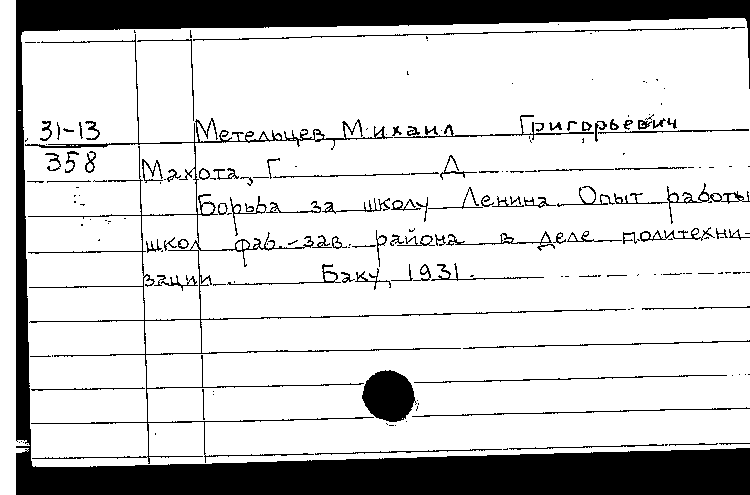 31-13
358
Метельцев, Михаил Григорьевич
Махота, Г. Д
Борьба за школу Ленина. Опыт работы
школ фаб.-зав. района в деле политехни-
зации. Баку, 1931.